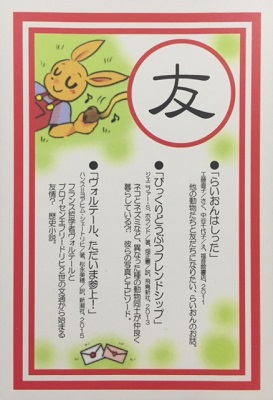 友
●「らいおんはしった」
工藤直子／さく、中谷千代子／え、福音館書店、2011
他の動物たちと友だちになりたい、らいおんのお話。
●「びっくりどうぶつフレンドシップ」
ジェニファー・S・ホランド／著、畑正憲／訳、飛鳥新社、2013
ネコとネズミなど、異なった種の動物同士が仲良く
暮らしている?! 彼らの写真とエピソード。
●「ヴォルテール、ただいま参上!」
ハンス=ヨアヒム・シェートリヒ／著、松永美穂／訳、新潮社、2015
フランス哲学者ヴォルテールと
プロイセン王フリードリヒ2世の文通から始まる
友情? 歴史小説。